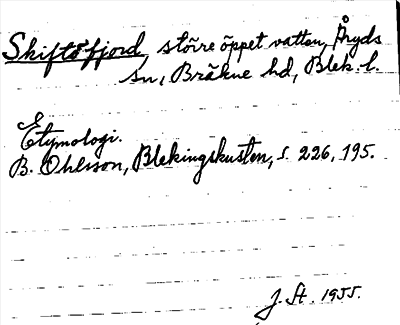 Skiftöfjord, större öppet vatten, Åryds
sn, Bräkne hd, Blek. l.
Etymologi.
B. Ohlsson, Blekingskusten, s. 226, 195.
J. St. 1955.